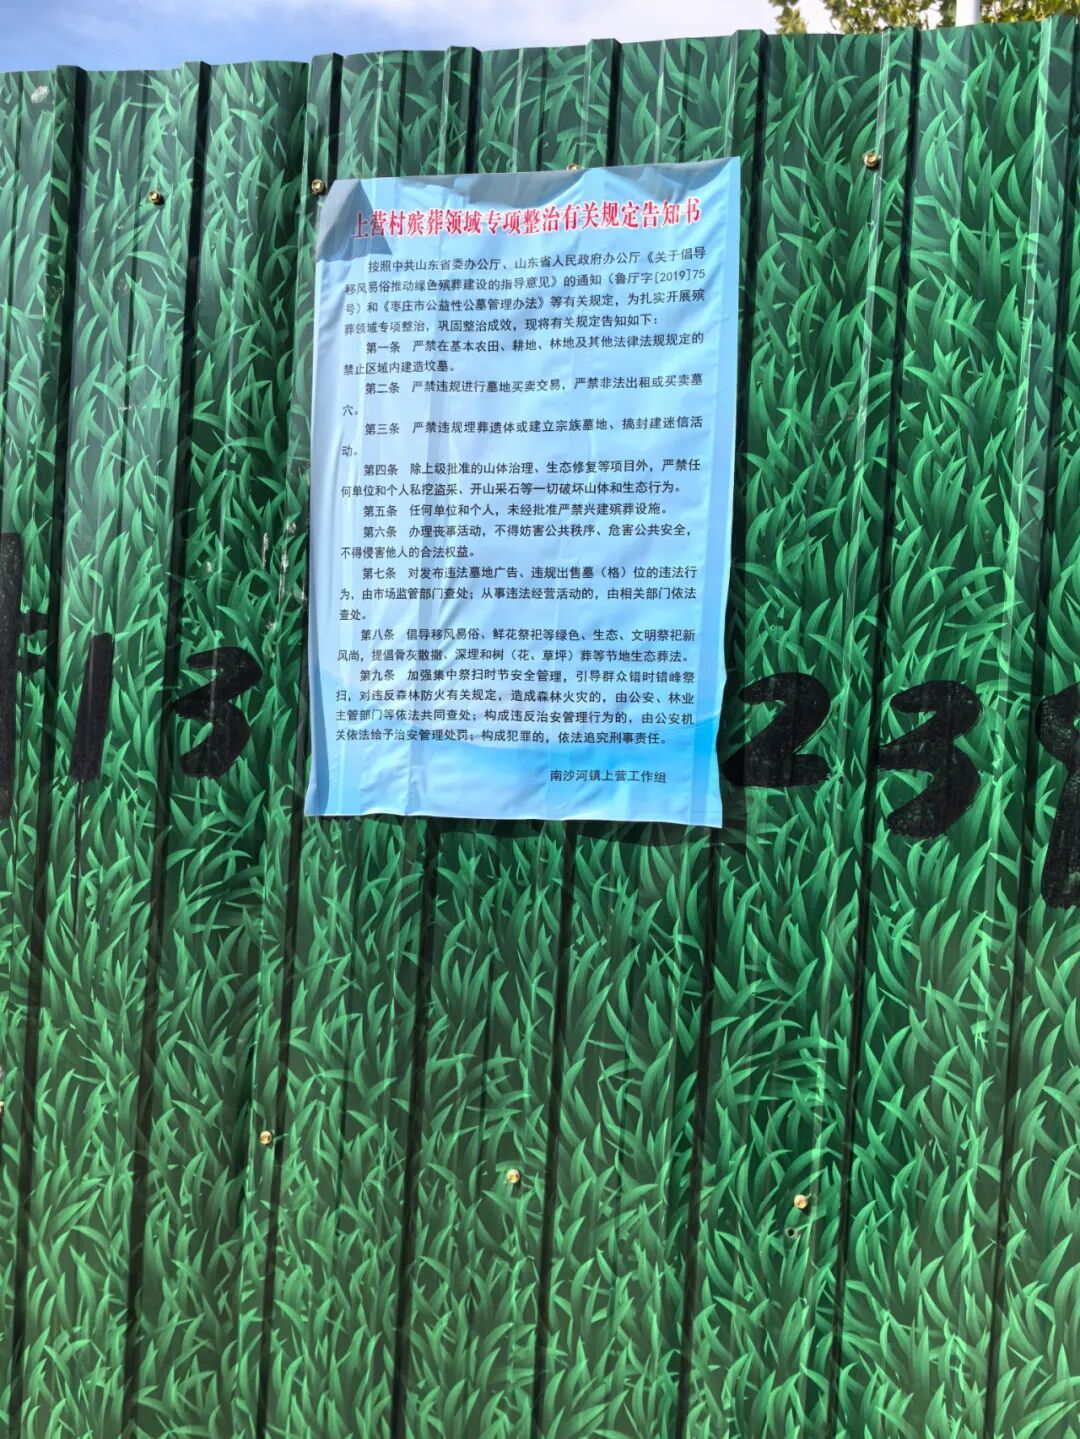 上营村殡葬领域专项整治有关规定告知书
按照中共山东省委办公厅、山东省人民政府办公厅《关于倡导
移风易俗推动绿色殡葬建设的指导意见》的通知（鲁厅字[2019]75
号）和《枣庄市公益性公墓管理办法》等有关规定，为扎实开展殡
葬领域专项整治，巩固整治成效，现将有关规定告知如下：
第一条 严禁在基本农田、耕地、林地及其他法律法规规定的
禁止区域内建造坟墓。
第二条 严禁违规进行墓地买卖交易，严禁非法出租或买卖墓
穴。
第三条 严禁违规埋葬遗体或建立宗族墓地、搞封建迷信活
动。
第四条 除上级批准的山体治理、生态修复等项目外，严禁任
何单位和个人私挖盗采、开山采石等一切破坏山体和生态行为。
第五条 任何单位和个人，未经批准严禁兴建殡葬设施。
第六条 办理丧事活动，不得妨害公共秩序、危害公共安全，
不得侵害他人的合法权益。
第七条 对发布违法墓地广告、违规出售墓（格）位的违法行
为，由市场监管部门查处；从事违法经营活动的，由相关部门依法
查处。
第八条 倡导移风易俗、鲜花祭祀等绿色、生态、文明祭祀新
风尚，提倡骨灰散撒、深埋和树（花、草坪）葬等节地生态葬法。
第九条 加强集中祭扫时节安全管理，引导群众错时错峰祭
扫，对违反森林防火有关规定，造成森林火灾的，由公安、林业
主管部门等依法共同查处；构成违反治安管理行为的，由公安机
关依法给予治安管理处罚；构成犯罪的，依法追究刑事责任。
南沙河镇上营工作组
13
23